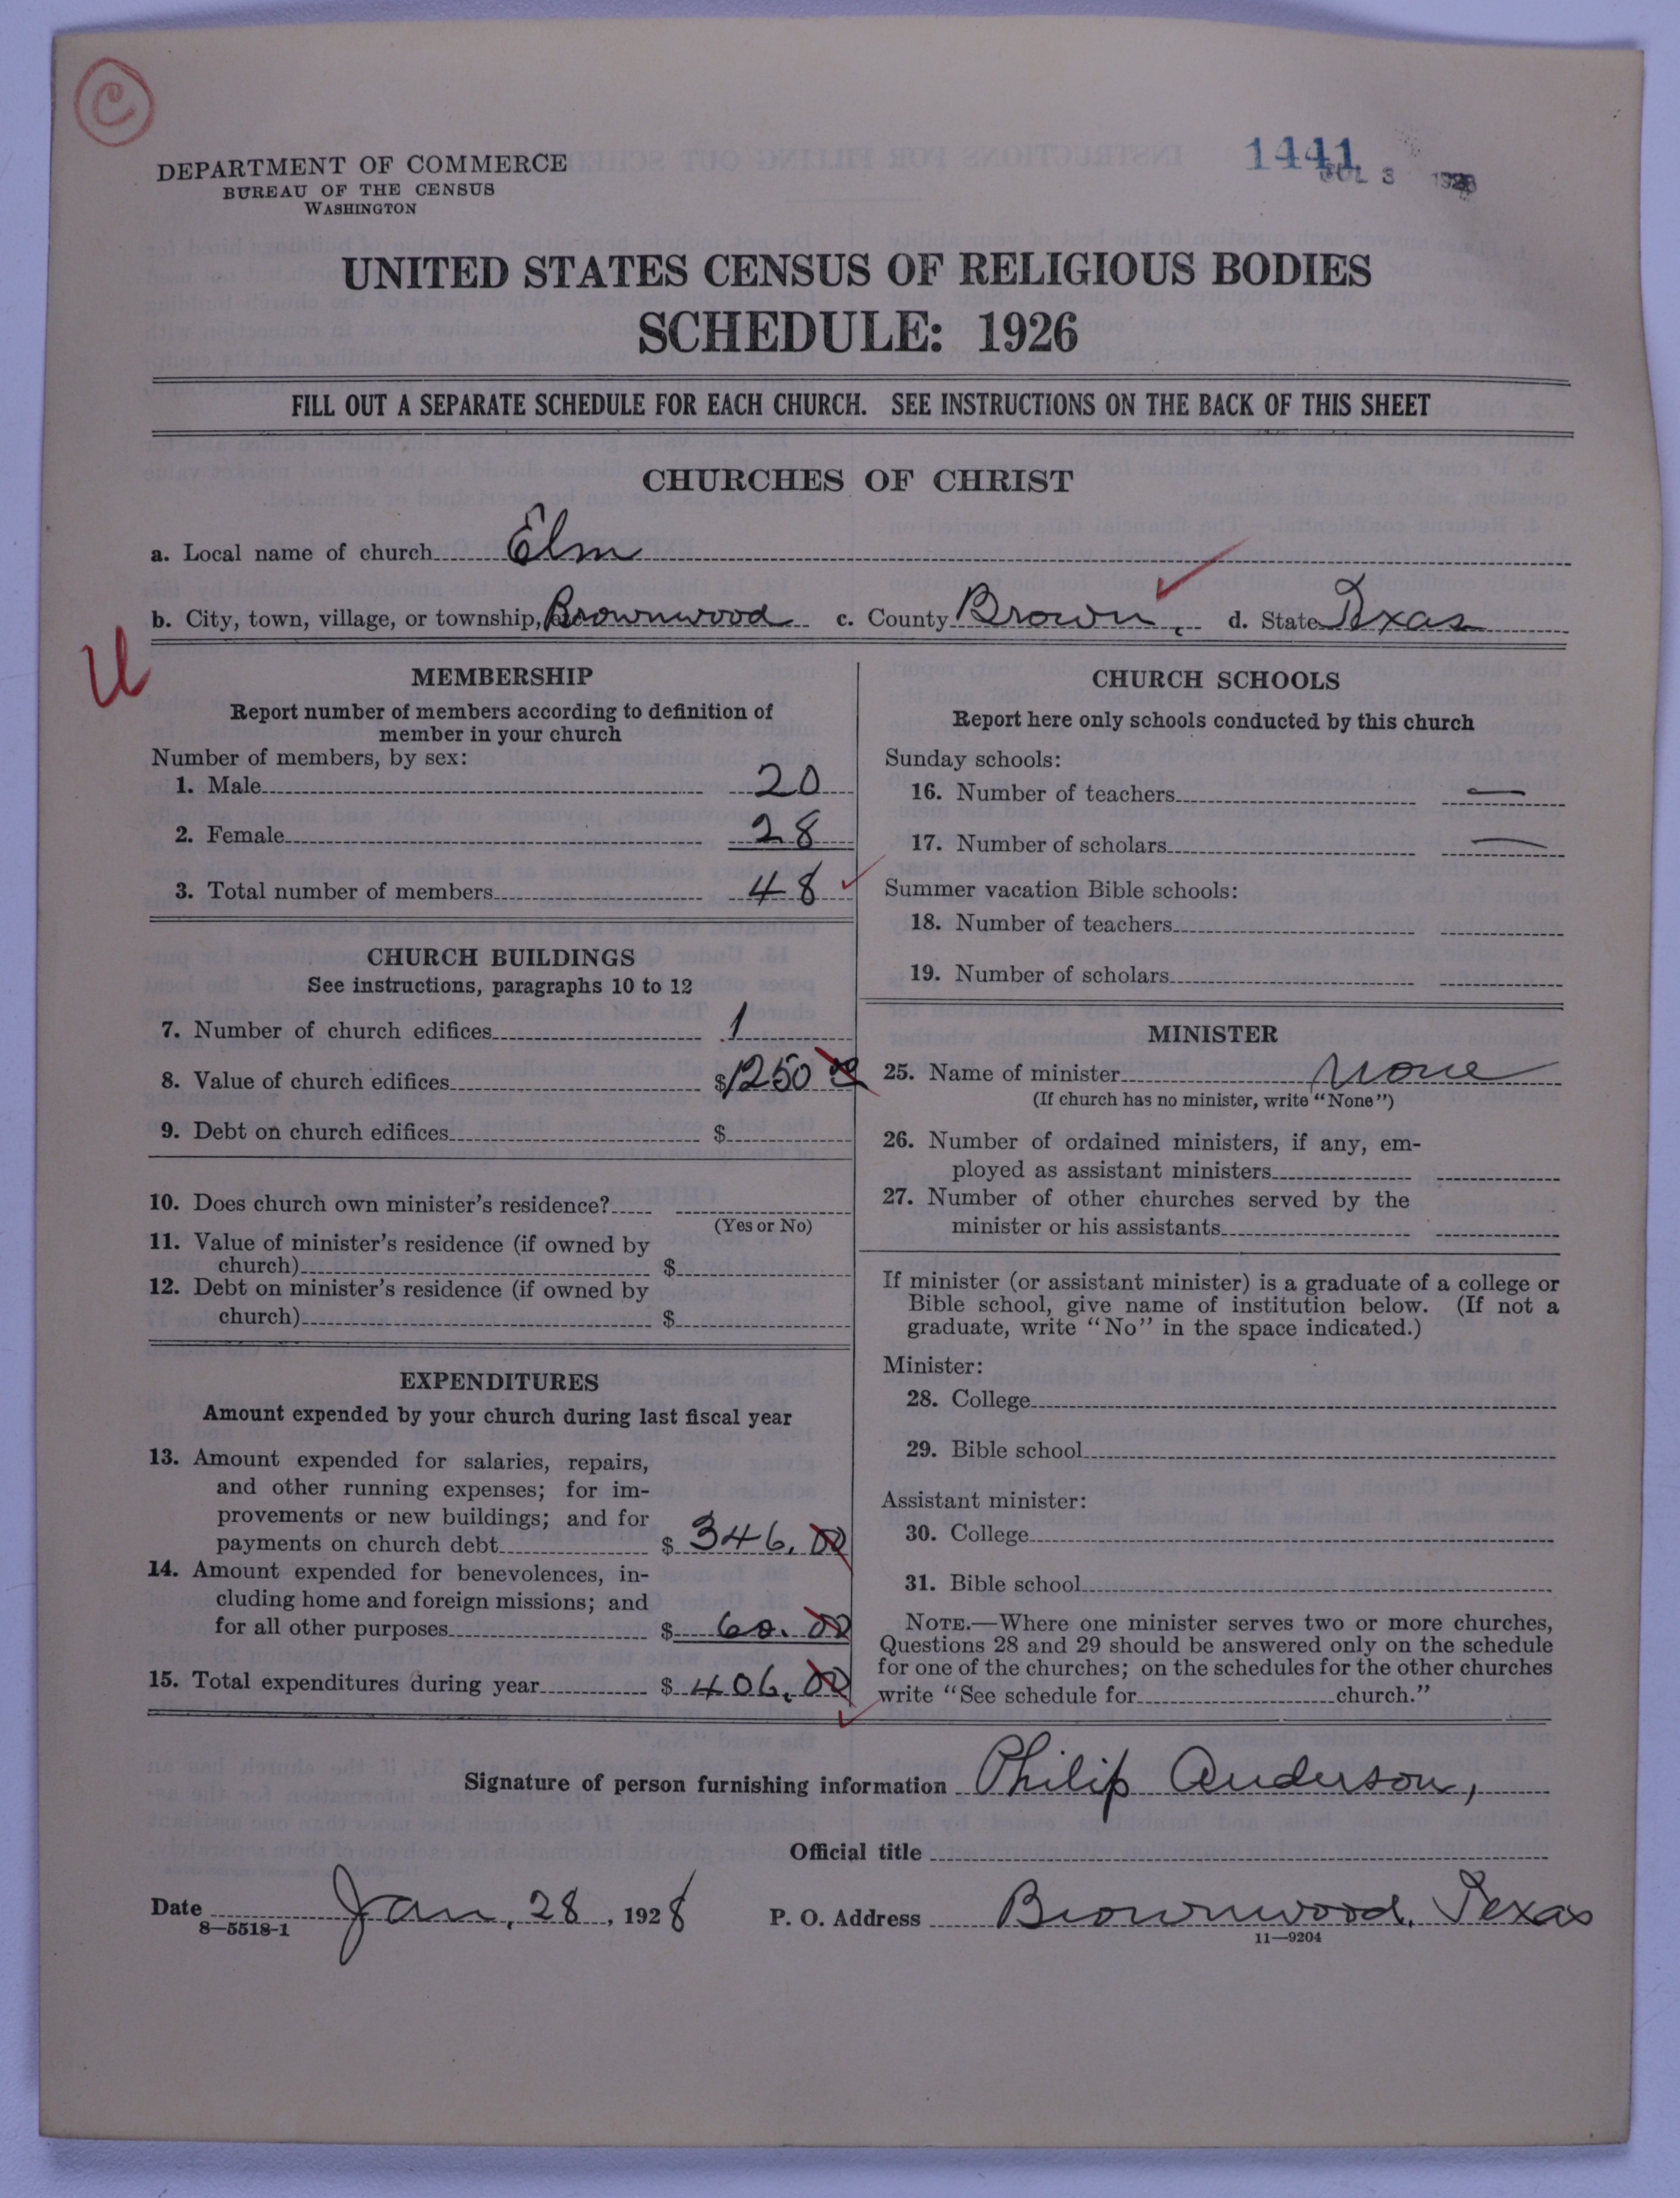 C
1441
JUL 3
DEPARTMENT OF COMMERCE
BUREAU OF THE CENSUS
WASHINGTON
UNITED STATES CENSUS OF RELIGIOUS BODIES
SCHEDULE: 1926
FILL OUT A SEPARATE SCHEDULE FOR EACH CHURCH. SEE INSTRUCTIONS ON THE BACK OF THIS SHEET
CHURCHES OF CHRIST
a. Local name of church Elm
b. City, town, village, or township, Brownwood c. County Brown, d. State Texas
U
MEMBERSHIP
Report number of members according to definition of
member in your church
Number of members, by sex:
1. Male 20
2. Female 28
3. Total number of members 48
CHURCH BUILDINGS
See instructions, paragraphs 10 to 12
7. Number of church edifices 1
8. Value of church edifices $1250 00
9. Debt on church edifices $
10. Does church own minister's residence?
(Yes or No)
11. Value of minister's residence (if owned by
church) $
12. Debt on minister's residence (if owned by
church) $
EXPENDITURES
Amount expended by your church during last fiscal year
13. Amount expended for salaries, repairs,
and other running expenses; for im-
provements or new buildings; and for
payments on church debt $ 346.00
14. Amount expended for benevolences, in-
cluding home and foreign missions; and
for all other purposes $ 60.00
15. Total expenditures during year $ 406.00
CHURCH SCHOOLS
Report here only schools conducted by this church
Sunday schools:
16. Number of teachers —
17. Number of scholars —
Summer vacation Bible schools:
18. Number of teachers
19. Number of scholars
MINISTER
25. Name of minister None
(If church has no minister, write "None")
26. Number of ordained ministers, if any, em-
ployed as assistant ministers
27. Number of other churches served by the
minister or his assistants
If minister (or assistant minister) is a graduate of a college or
Bible school, give name of institution below. (If not a
graduate, write "No" in the space indicated.)
Minister:
28. College
29. Bible school
Assistant minister:
30. College
31. Bible school
NOTE.—Where one minister serves two or more churches,
Questions 28 and 29 should be answered only on the schedule
for one of the churches; on the schedules for the other churches
write "See schedule for church."
Signature of person furnishing information Philip Anderson,
Official title
Date Jan, 28, 1928 P. O. Address Brownwood, Texas
8—5518-1 11—9204